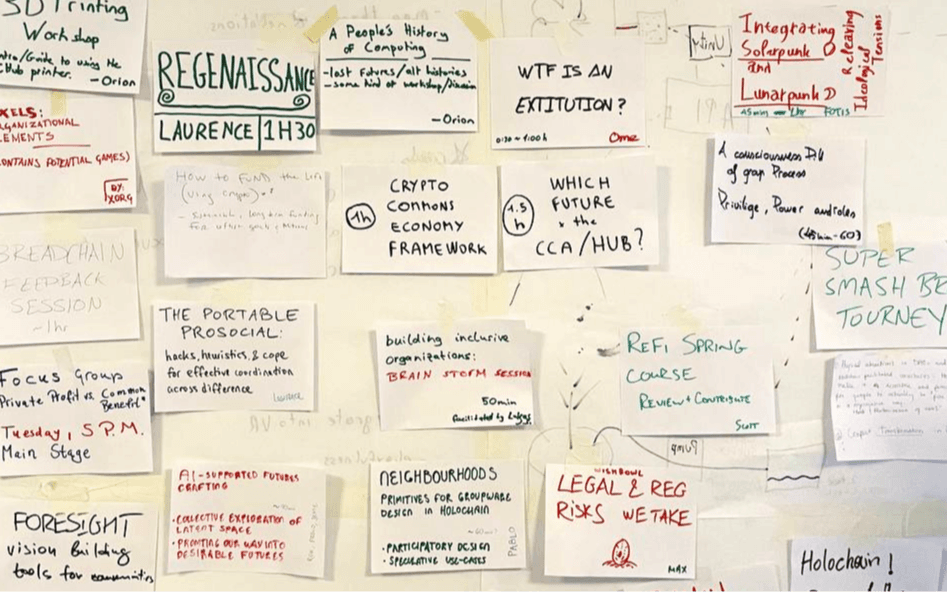 3D Printing
Workshop
Intro/Guide to using the
Hub printer.
-Orion
REGENAISSANCE
LAURENCE | 1H30
A People's History
of Computing
-lost futures/alt histories
-some kind of workshop/
-Orion
WTF IS AN
EXTITUTION?
0:30 ~ 1:00h
Ome
Integrating
Solarpunk
and
Lunarpunk
45min 1hr FOTIS
Releaving
Ideological
Tensions
XELS:
GANIZATIONAL
LEMENTS
ONTAINS POTENTIAL GAMES)
BY:
XORG
HOW TO FUND the
(using crypto)
CRYPTO
COMMONS
ECONOMY
FRAMEWORK
1h
WHICH
FUTURE
the
CCA/HUB?
1.5
h
A consciousness
of group Process
Privilige, Power and roles
(45min-60)
BREADCHAIN
FEEDBACK
SESSION
~1hr
THE PORTABLE
PROSOCIAL:
hacks, heuristics, & cope
for effective coordination
across difference
Laurence
building inclusive
organizations:
BRAIN STORM SESSION
50min
facilitated by
REFI SPRING
COURSE
REVIEW + CONTRIBUTE
SCOTT
SUPER
SMASH BR
TOURNEY
Focus Group
Private Profit vs. Common
Benefit"
Tuesday, 5 P.M.
Main Stage
AI-SUPPORTED FUTURES
CRAFTING
•COLLECTIVE EXPLORATION OF
LATENT SPACE
•PROMTING OUR WAY INTO
DESIRABLE FUTURES
NEIGHBOURHOODS
PRIMITIVES FOR GROUPWARE
DESIGN IN HOLOCHAIN
•PARTICIPATORY DESIGN
•SPECULATIVE USE-CASES
PABLO
FISHBOWL
LEGAL & REG
RISKS WE TAKE
MAX
FORESIGHT
vision building
tools for communities
Holochain!